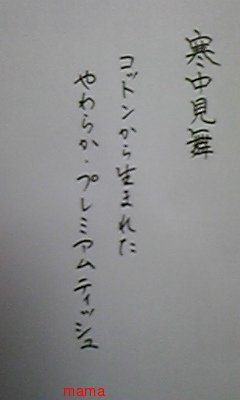 寒中見舞
コットンから生まれた
やわらか・プレミアムティッシュ
mama